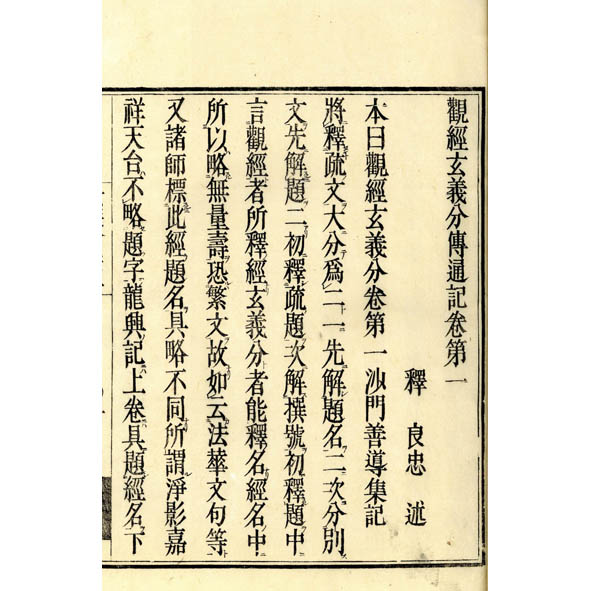 觀經玄義分傳通記卷第一
釋良忠述
本曰觀經玄義分卷第一沙門善導集記
將釋疏文大分爲二一先解題名二次分別
文先解題二初釋疏題次解撰號初釋題中
言觀經者所釋經玄義分者能釋名經名中
所以略無量壽恐繁文故如云法華文句等
又諸師標此經題名具略不同所謂淨影嘉
祥天台不略題字龍興記上卷具題經名下